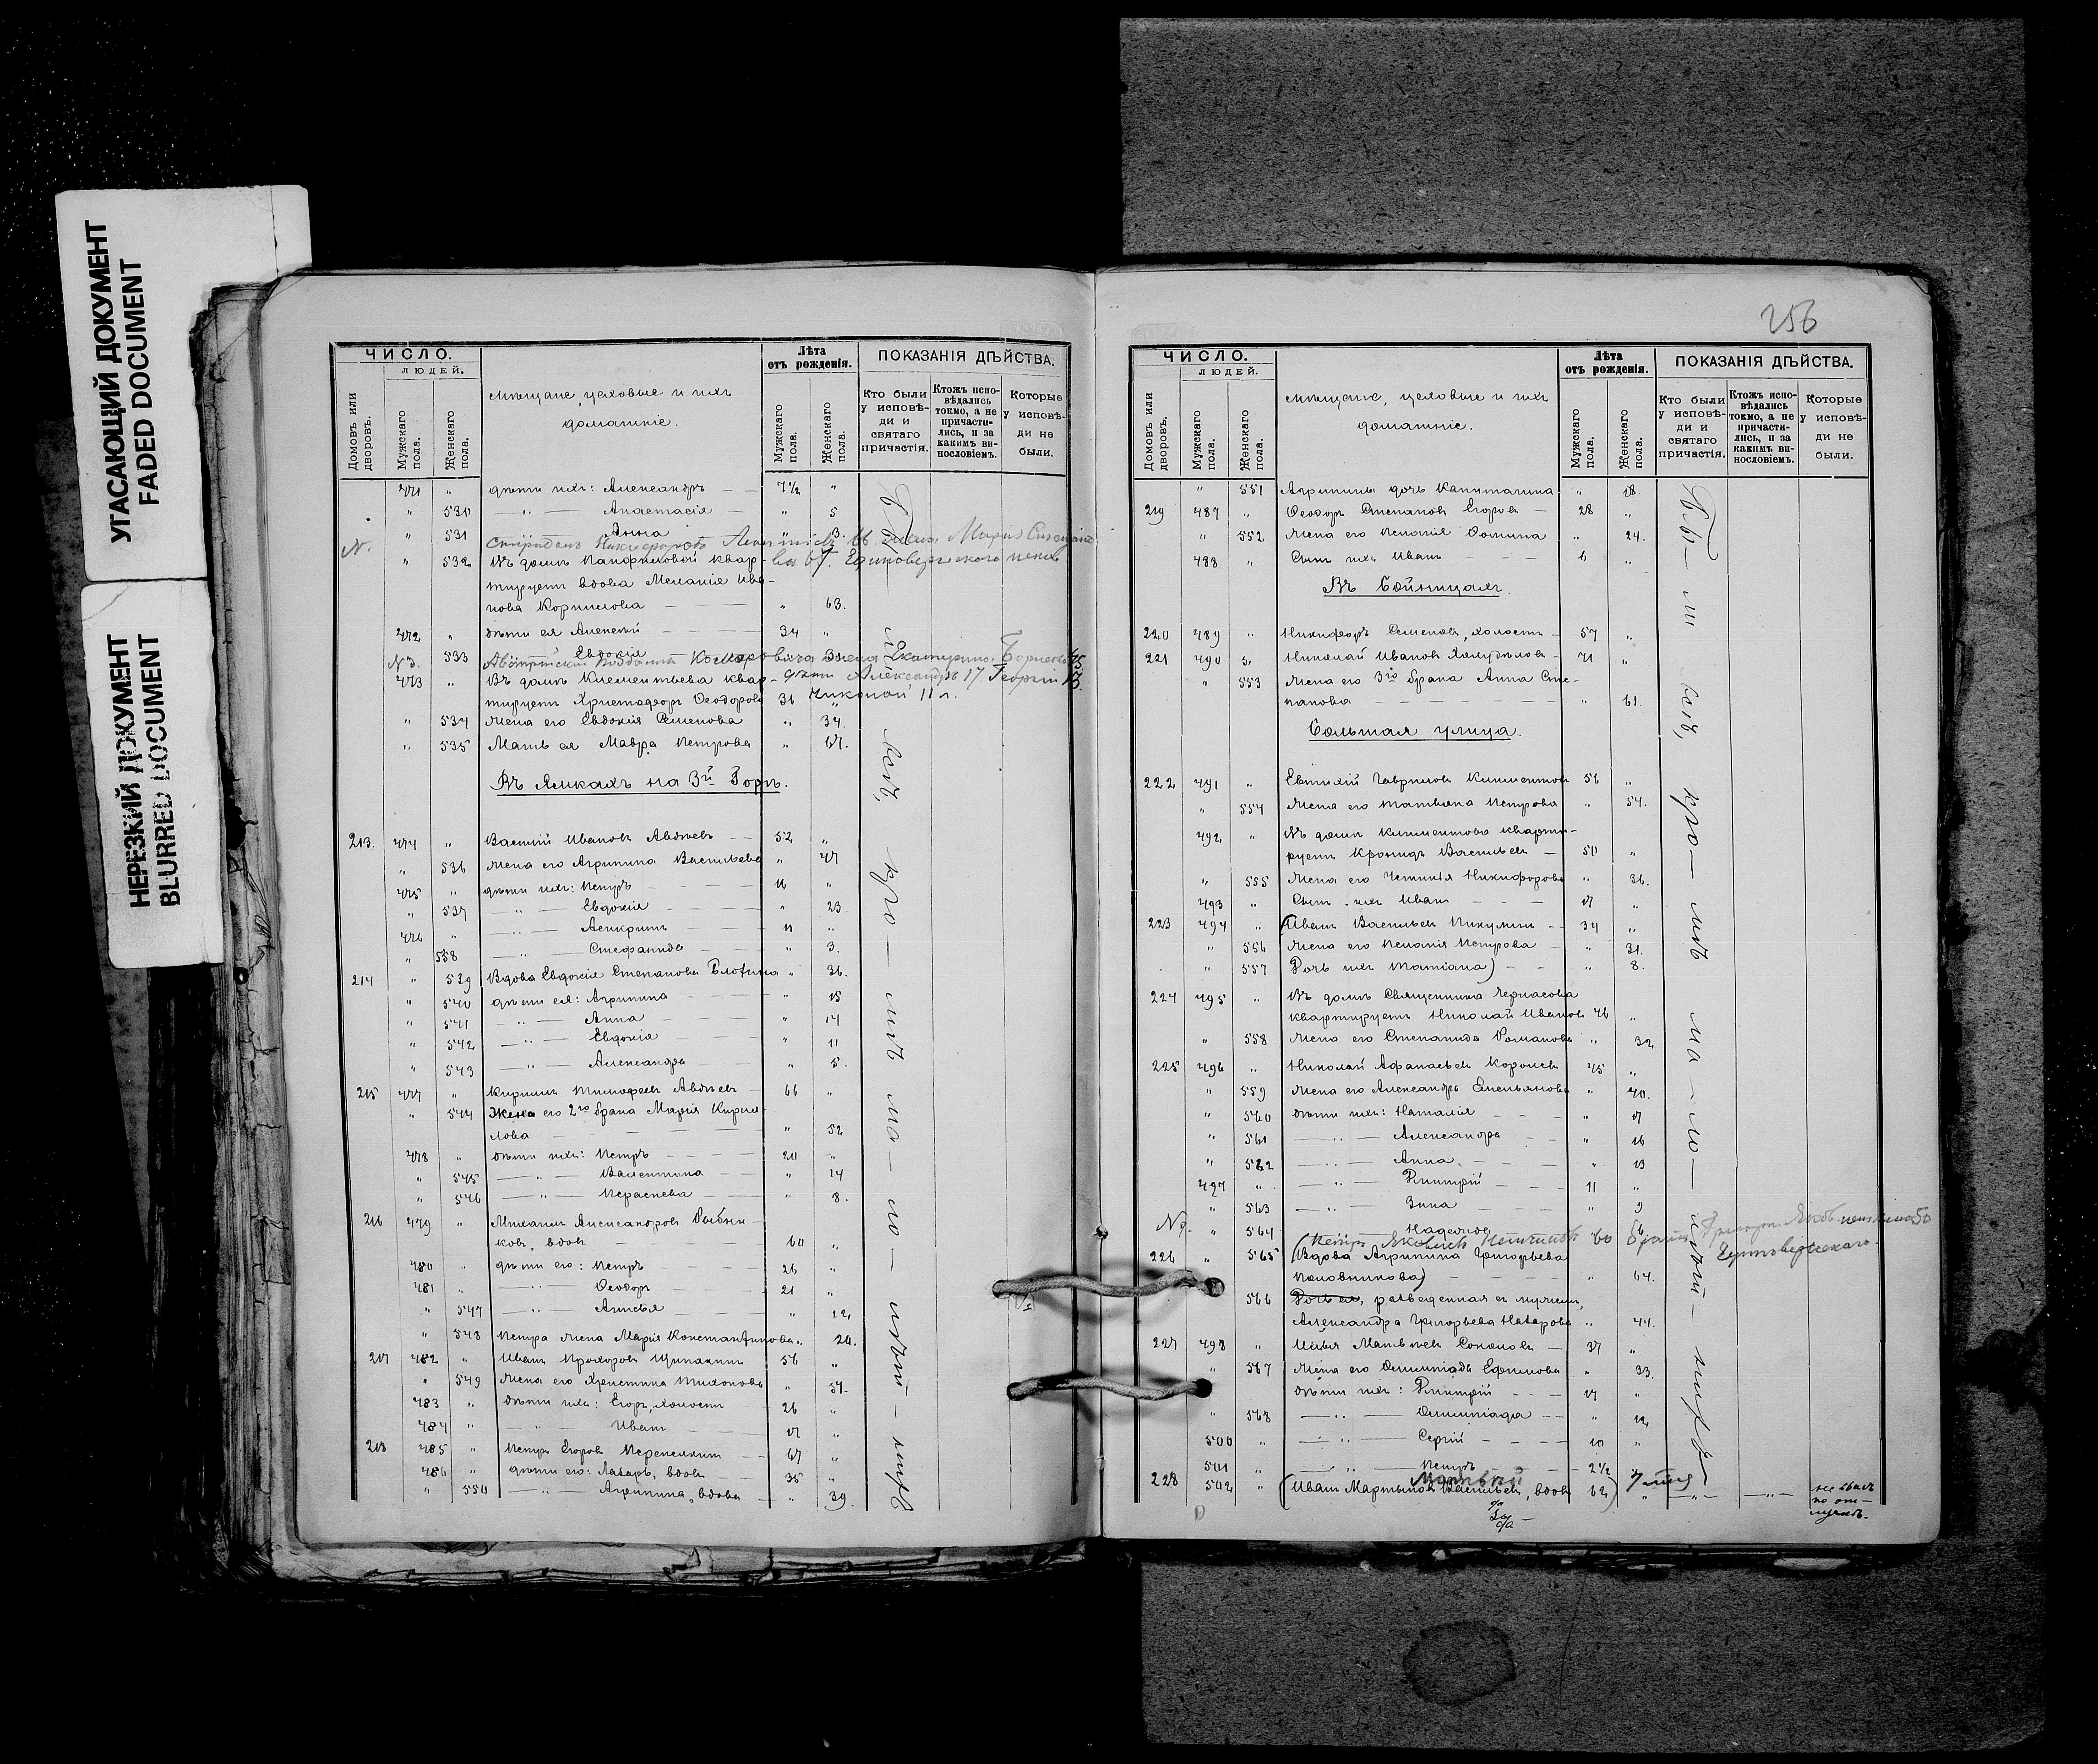 УГАСАЮЩИЙ ДОКУМЕНТ
FADED DOCUMENT
НЕРЕЗКИЙ ДОКУМЕНТ
BLURRED DOCUMENT
ЧИСЛО.
ЛЮДЕЙ.
Домовъ или дворовъ.
Мужскаго пола.
Женскаго пола.
Мѣщане, цеховые и ихъ
домашніе.
Лѣта
отъ рожденія.
Мужскаго пола.
Женскаго пола.
ПОКАЗАНІЯ ДѢЙСТВА.
Кто были у исповѣди и святаго причастія.
Ктожъ исповѣдались токмо, а не причастились, и за какимъ винословіемъ.
Которые у исповѣди не были.
471 " дѣти ихъ: Александръ — 7½ "
" 530 — " — Анастасія — " 5
" 531 Анна " 3.
" 532 Въ домѣ Панфиловой квар-
тируетъ вдова Меланія Ива-
нова Корнилова — " 63.
472 " дѣти ея Алексѣй — 34 "
533 Евдокія
473 " Въ домѣ Клементьева квар-
тируетъ Христофоръ Ѳеодоровъ 36 "
" 534 Жена его Евдокія Семенова " 34.
" 535 Мать ея Мавра Петрова " 67.
Николай 11 л.
Въ Ямкахъ на 3й Горѣ.
213. 474 " Василій Ивановъ Авдѣевъ — 52 "
" 536 Жена его Агрипина Васильева " 47
475 " дѣти ихъ: Петръ — 16 "
" 537 — " — Евдокія — " 23
476 " — " — Асикритъ — 11 "
" 538 — " — Стефанида — " 3.
214 " 539 Вдова Евдокія Степанова " 36.
" 540 дѣти ея: Агрипина — " 15
" 541 — " — Анна — " 14
" 542 — " — Евдокія — " 11
" 543 — " — Александра — " 5.
215 477 " Кирилъ Тимофеевъ Авдѣевъ — 66 "
" 544 Жена его 2го брака Марія Кирил-
лова — " 52
478 " дѣти ихъ: Петръ — 20 "
" 545 — " — Валентина — " 14
" 546 — " — Параскева — " 8.
216 479 " Михаилъ Александровъ Рыбни-
ковъ, вдовъ — 60 "
480 " дѣти его: Петръ — 26 "
481 " — " — Ѳеодоръ — 21 "
" 547 — " — Анисья — " 12,
" 548 Петра жена Марія Константинова " 20.
217 482 " Иванъ Прохоровъ Щипакинъ 56 "
" 549 Жена его Христина Тихонова " 57.
483 " дѣти ихъ: Егоръ, холостъ — 26 "
484 " — " — Иванъ — 17 "
218 485 " Петръ Егоровъ Перепелкинъ — 67 "
486 " дѣти его: Лазарь, вдовъ — 35 "
" 550 — " — Агрипина, вдова — " 39.
Бы — ли всѣ, кро — мѣ ма — ло — лѣт — нихъ
256
ЧИСЛО.
ЛЮДЕЙ.
Домовъ или дворовъ.
Мужскаго пола.
Женскаго пола.
Мѣщане, цеховые и ихъ
домашніе.
Лѣта
отъ рожденія.
Мужскаго пола.
Женскаго пола.
ПОКАЗАНІЯ ДѢЙСТВА.
Кто были у исповѣди и святаго причастія.
Ктожъ исповѣдались токмо, а не причастились, и за какимъ винословіемъ.
Которые у исповѣди не были.
" 551 Агрипины дочь Капиталина " 18.
219 487 " Ѳеодоръ Степановъ Егоровъ — 28 "
" 552 Жена его Пелагія Ѳомина " 24.
488 " Сынъ ихъ Иванъ — "
Въ Бойницахъ.
220 489 " Никифоръ Семеновъ, холостъ — 57 "
221 490 Николай Ивановъ 71 "
" 553 Жена его 3го брака Анна Сте-
панова — " 61.
Большая улица.
222 491 " Евтихій Гавриловъ Климентовъ 56 "
" 554 Жена его Татьяна Петрова " 54.
492 " Въ домѣ Климентова кварти-
руетъ Кронидъ Васильевъ — 50 "
" 555 Жена его Никифорова " 36.
493 " Сынъ ихъ Иванъ — 17 "
223 494 " (Иванъ Васильевъ Пикулинъ — 34 "
" 556 Жена его Пелагія Петрова — " 31.
" 557 Дочь ихъ Татіана) — " 8.
224 495 " Въ домѣ Священника Черкасова
квартируетъ Николай Ивановъ 46 "
" 558 Жена его Степанида Романова " 32,
225 496 " Николай Афанасьевъ Королевъ 45 "
" 559 Жена его Александра Емельянова " 40.
" 560 дѣти ихъ: Наталія — " 17
" 561 — " — Александра — " 16
" 562 — " — Анна — " 13
497 " — " — Димитрій — 11 "
" 563 — " — Зина — " 9
" 564 Надежда 6
226 " 565 (Вдова Агрипина Григорьева
Половникова) — " 64.
566 Дочь ея, разведенная съ мужемъ,
Александра Григорьева Назарова " 44.
227 498 " Илья Матвѣевъ Соколовъ — 37 "
" 567 Жена его Олимпіада Ефимова " 33.
дѣти ихъ: Димитрій — 17 "
" 568 — " — Олимпіада — " 12,
500 " — " — Сергій — 10 "
501 " — " — Петръ — 2½ "
228 502 " (Иванъ Мартыновъ Васильевъ, вдовъ 62) " — " — — " —
не былъ
по от-
лучкѣ.
Бы — ли всѣ, кро — мѣ ма — ло — лѣт — нихъ